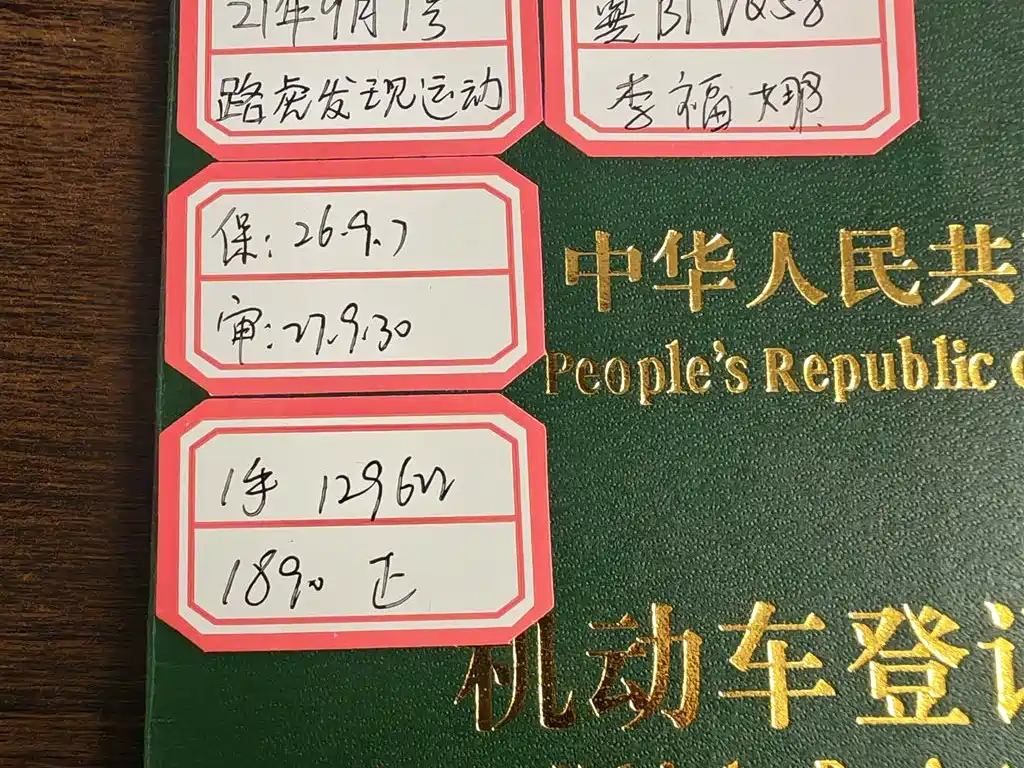 21年9月1号
路虎发现运动
李福娜
保:26.9.7
审:27.9.30
1手 129622
1890 正
中华人民共
People's Republic
机动车登